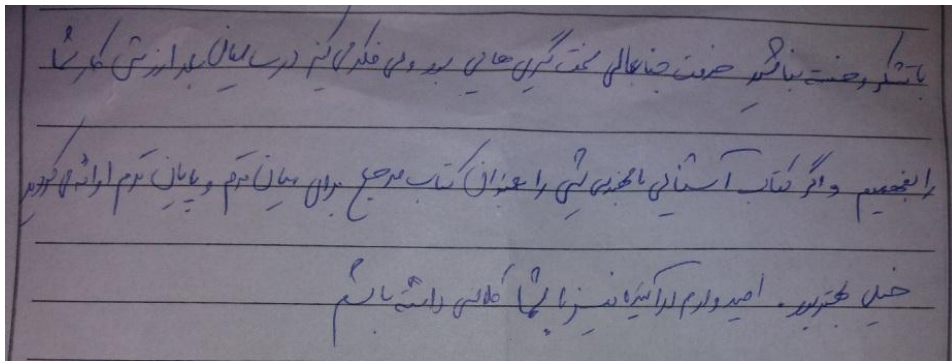 با تشکر و خسته نباشید حرفت جنابعالی سخت گیری هایی بود ولی فکر می کنم در سالیان بعد ارزش کار شما
را بفهمیم و اگر کتاب آشنایی با مهندسی را بعنوان کتاب مرجع برای میان ترم و پایان ترم ارائه می کردید
خیلی بهتر بود. امیدوارم در آینده نیز با شما کلاس داشته باشم